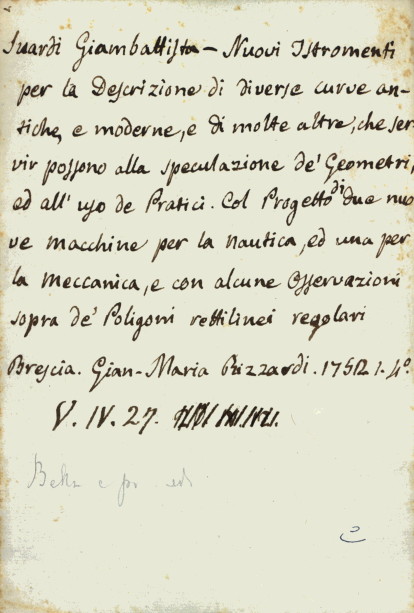 Suardi Giambattista - Nuovi Istromenti
per la Descrizione di diverse curve an-
tiche, e moderne, e di molte altre, che ser
vir possono alla speculazione de' Geometri,
ed all' uso de Pratici. Col Progetto di due nuo
ve macchine per la nautica, ed una per
la Meccanica, e con alcune Osservazioni
sopra de' Poligoni rettilinei regolari
Brescia. Gian-Maria Rizzardi. 1752 1. 4°.
V. IV. 27.